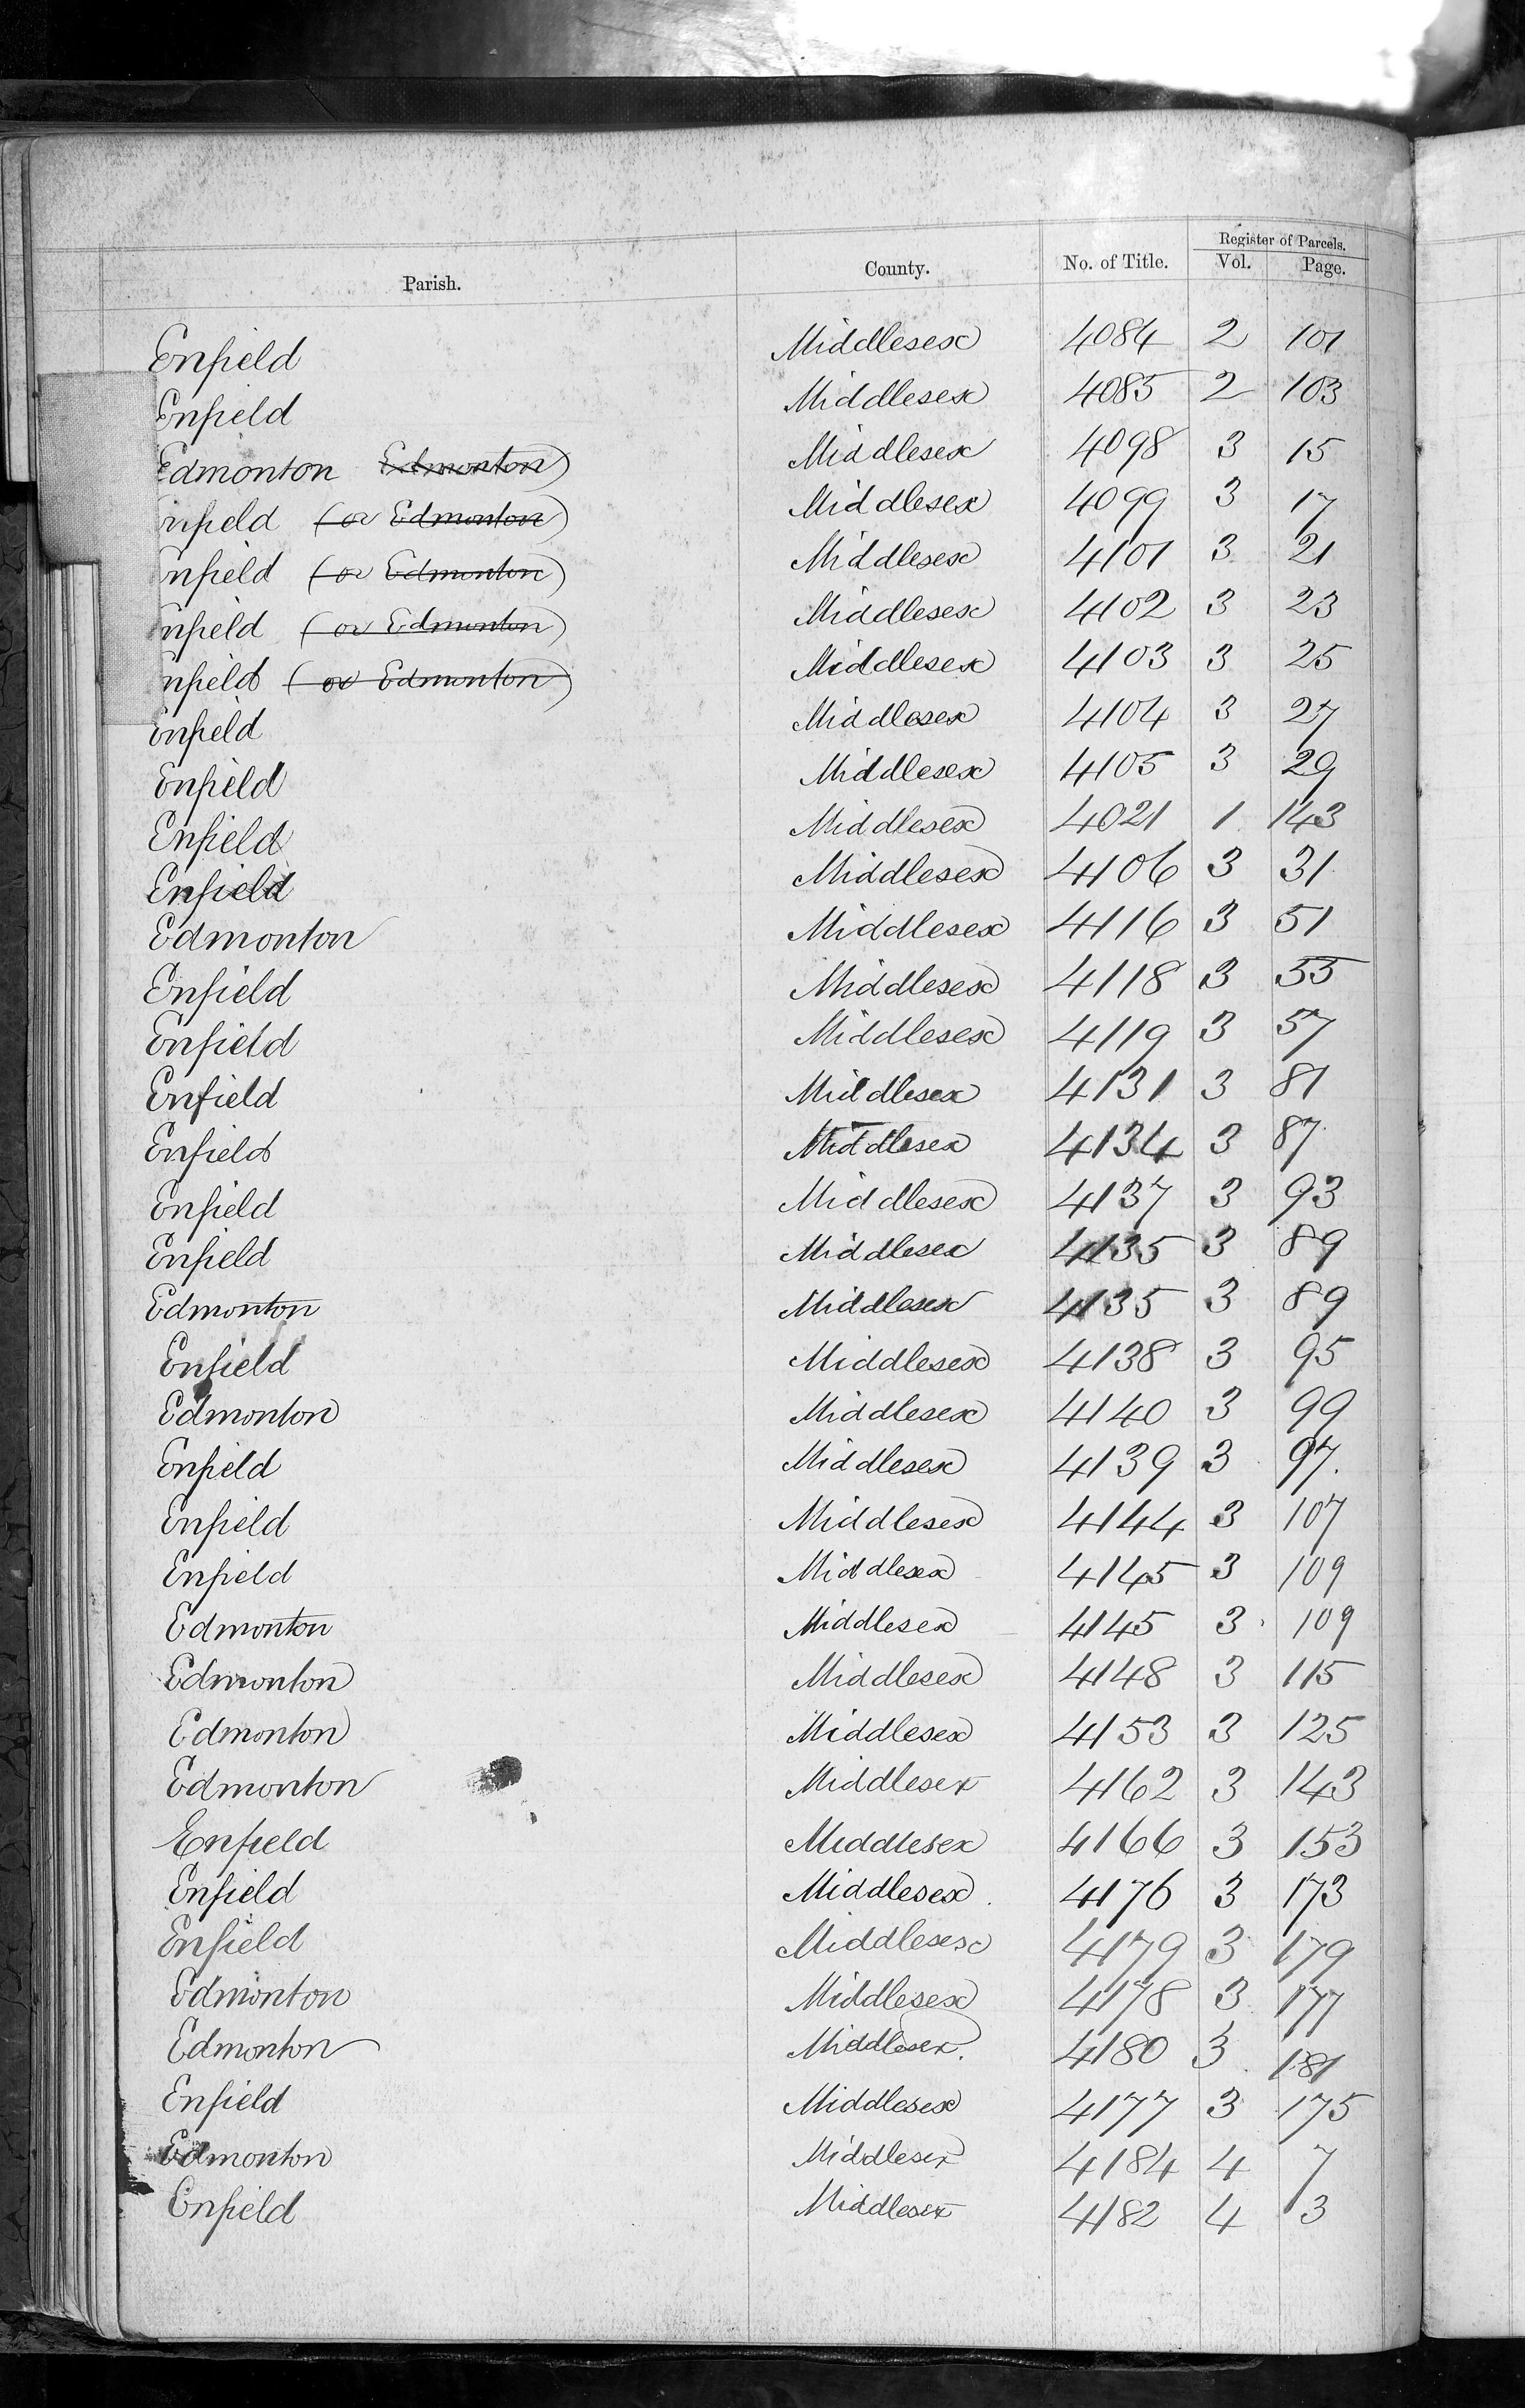 Parish. County. No. of Title. Register of Parcels. Vol. Page.
Enfield Middlesex 4084 2 101
Enfield Middlesex 4085 2 103
Edmonton Edmonton) Middlesex 4098 3 15
nfield (or Edmonton) Middlesex 4099 3 17
nfield (or Edmonton) Middlesex 4101 3 21
nfield (or Edmonton) Middlesex 4102 3 23
nfield (or Edmonton) Middlesex 4103 3 25
Enfield Middlesex 4104 3 27
Enfield Middlesex 4105 3 29
Enfield Middlesex 4021 1 143
Enfield Middlesex 4106 3 31
Edmonton Middlesex 4116 3 51
Enfield Middlesex 4118 3 55
Enfield Middlesex 4119 3 57
Enfield Middlesex 4131 3 81
Enfield Middlesex 4134 3 87
Enfield Middlesex 4137 3 93
Enfield Middlesex 4135 3 89
Edmonton Middlesex 4135 3 89
Enfield Middlesex 4138 3 95
Edmonton Middlesex 4140 3 99
Enfield Middlesex 4139 3 97.
Enfield Middlesex 4144 3 107
Enfield Middlesex 4145 3 109
Edmonton Middlesex 4145 3 109
Edmonton Middlesex 4148 3 115
Edmonton Middlesex 4153 3 125
Edmonton Middlesex 4162 3 143
Enfield Middlesex 4166 3 153
Enfield Middlesex 4176 3 173
Enfield Middlesex 4179 3 179
Edmonton Middlesex 4178 3 177
Edmonton Middlesex. 4180 3 181
Enfield Middlesex 4177 3 175
Edmonton Middlesex 4184 4 7
Enfield Middlesex 4182 4 3